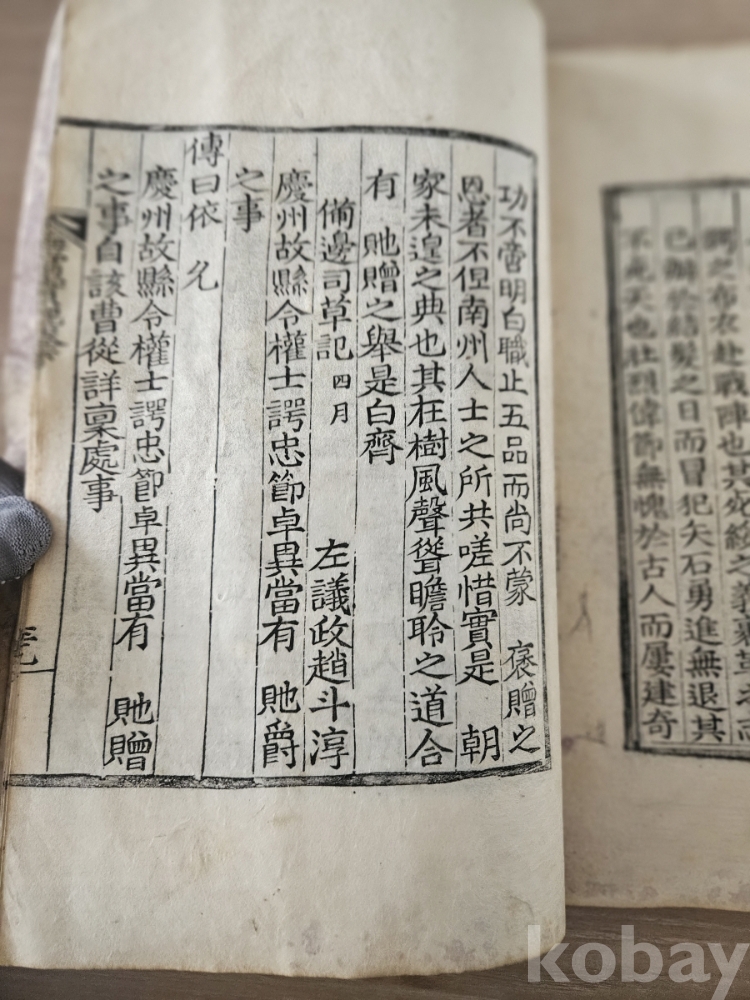 功不啻明白職止五品而尚不蒙 褒贈之
恩者不但南州人士之所共嗟惜實是 朝
家未遑之典也其在樹風聲聳瞻聆之道合
有 貤贈之舉是白齊
備邊司草記 四月 左議政趙斗淳
慶州故縣令權士諤忠節卓異當有 貤爵
之事
傳曰依允
慶州故縣令權士諤忠節卓異當有 貤贈
之事自該曹從詳稟處事
之布衣赴戰陣也其
已辦於結髮之日而冒犯矢石勇進無退其
天也壯烈偉節無愧於古人而屢建奇
kobay